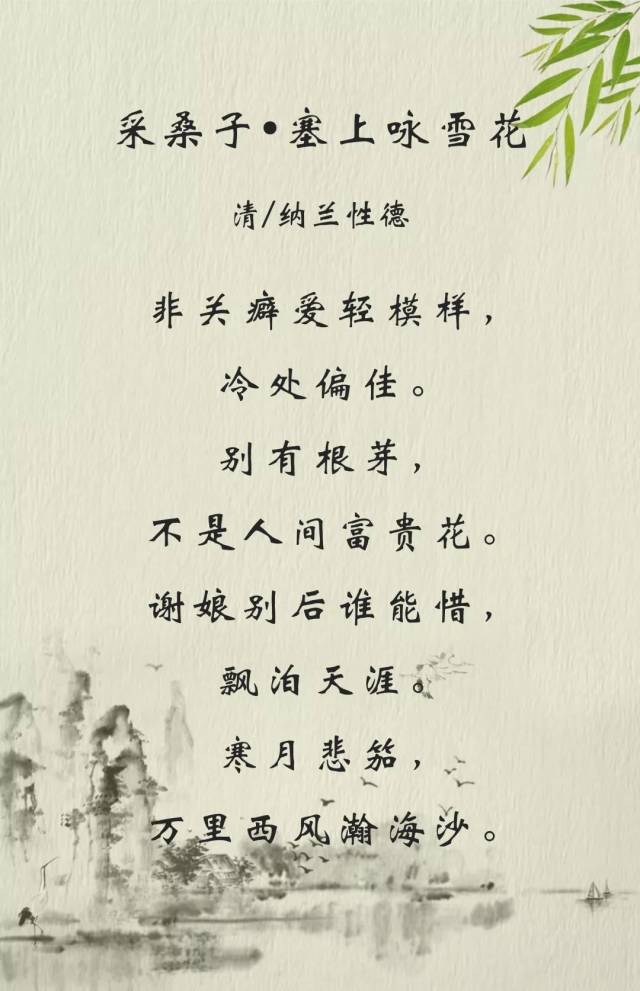 采桑子•塞上咏雪花
清/纳兰性德
非关癖爱轻模样，
冷处偏佳。
别有根芽，
不是人间富贵花。
谢娘别后谁能惜，
飘泊天涯。
寒月悲笳，
万里西风瀚海沙。